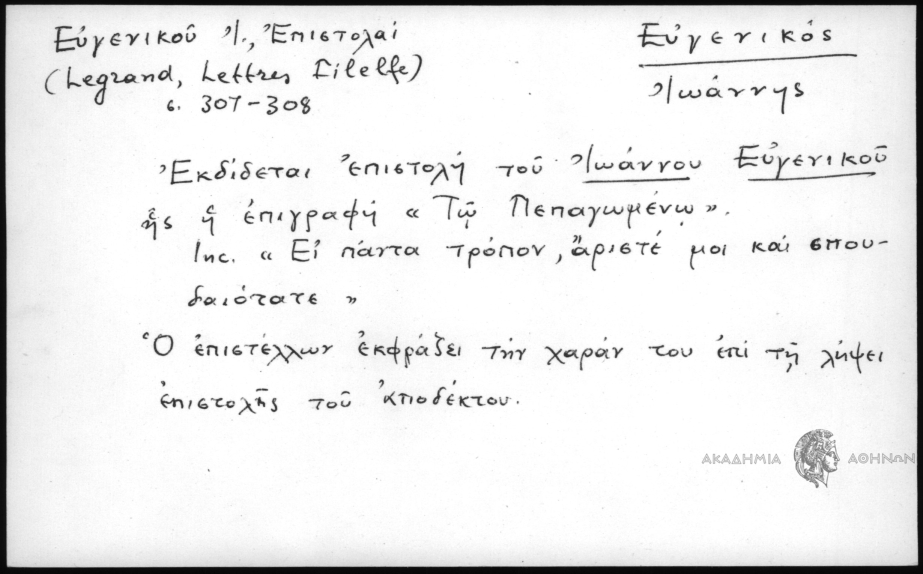 Εὐγενικοῦ Ἰ., Ἐπιστολαί
(Legrand, Lettres Filelfe)
σ. 307-308
Εὐγενικός
Ἰωάννης
Ἐκδίδεται ἐπιστολή τοῦ Ἰωάννου Εὐγενικοῦ
ἧς ἡ ἐπιγραφή « Τῷ Πεπαγωμένῳ ».
Inc. « Εἰ πάντα τρόπον, ἄριστέ μοι καί σπου-
δαιότατε »
Ὁ ἐπιστέλλων ἐκφράζει τήν χαράν του ἐπί τῇ λήψει
ἐπιστολῆς τοῦ ἀποδέκτου.
ΑΚΑΔΗΜΙΑ ΑΘΗΝΩΝ